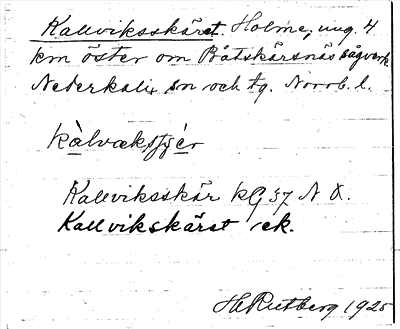 Kallviksskäret. Holme, ung. 4
km öster om Båtskärsnäs sågverk
Nederkalix sn och tg. Norrb. l.
kàlvækʃʃér
Kallviksskär kG 57 N Ö.
Kallvikskäret ek.
H Rutberg 1925